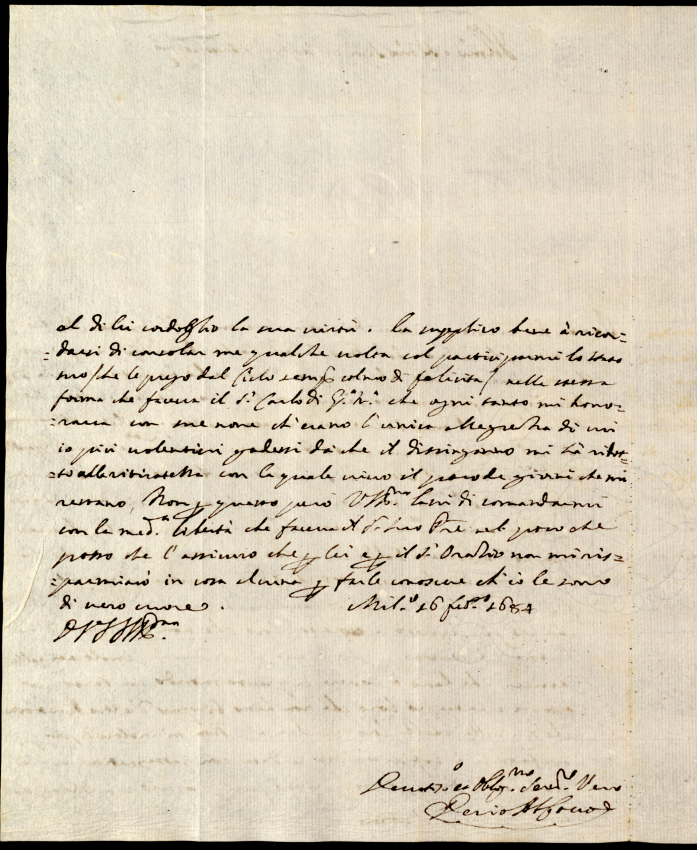 al di lei cordoglio la sua virtù. La supplico bene à ricor=
=darsi di consolar me qualche volta col participarmi lo stato
suo (che le prego dal Cielo semp. colmo di felicità) nella stessa
forma che faceva il S.r Carlo di che ogni tanto mi hono=
=rava con sue nove ch'erano l'unica allegrezza di cui
io più volentieri godessi da che il disinganno mi hà ridot=
=to alla ritiratezza con la quale vivo il poco de giorni che mi
restano, Non p questo però V.S. Ill.ma lasci di comandarmi
con la med.ma libertà che faceva il S.r suo P.re nel poco che
posso che l'assicuro che p lei e p il S.r Orazio non mi ris=
=parmiarò in cosa alcuna p farle conoscere ch'io le sono
di vero cuore. Mil.o 16 feb.o 1684
D V.S. Ill.ma
Devotiss.o et Obbl.mo Serv.re Vero